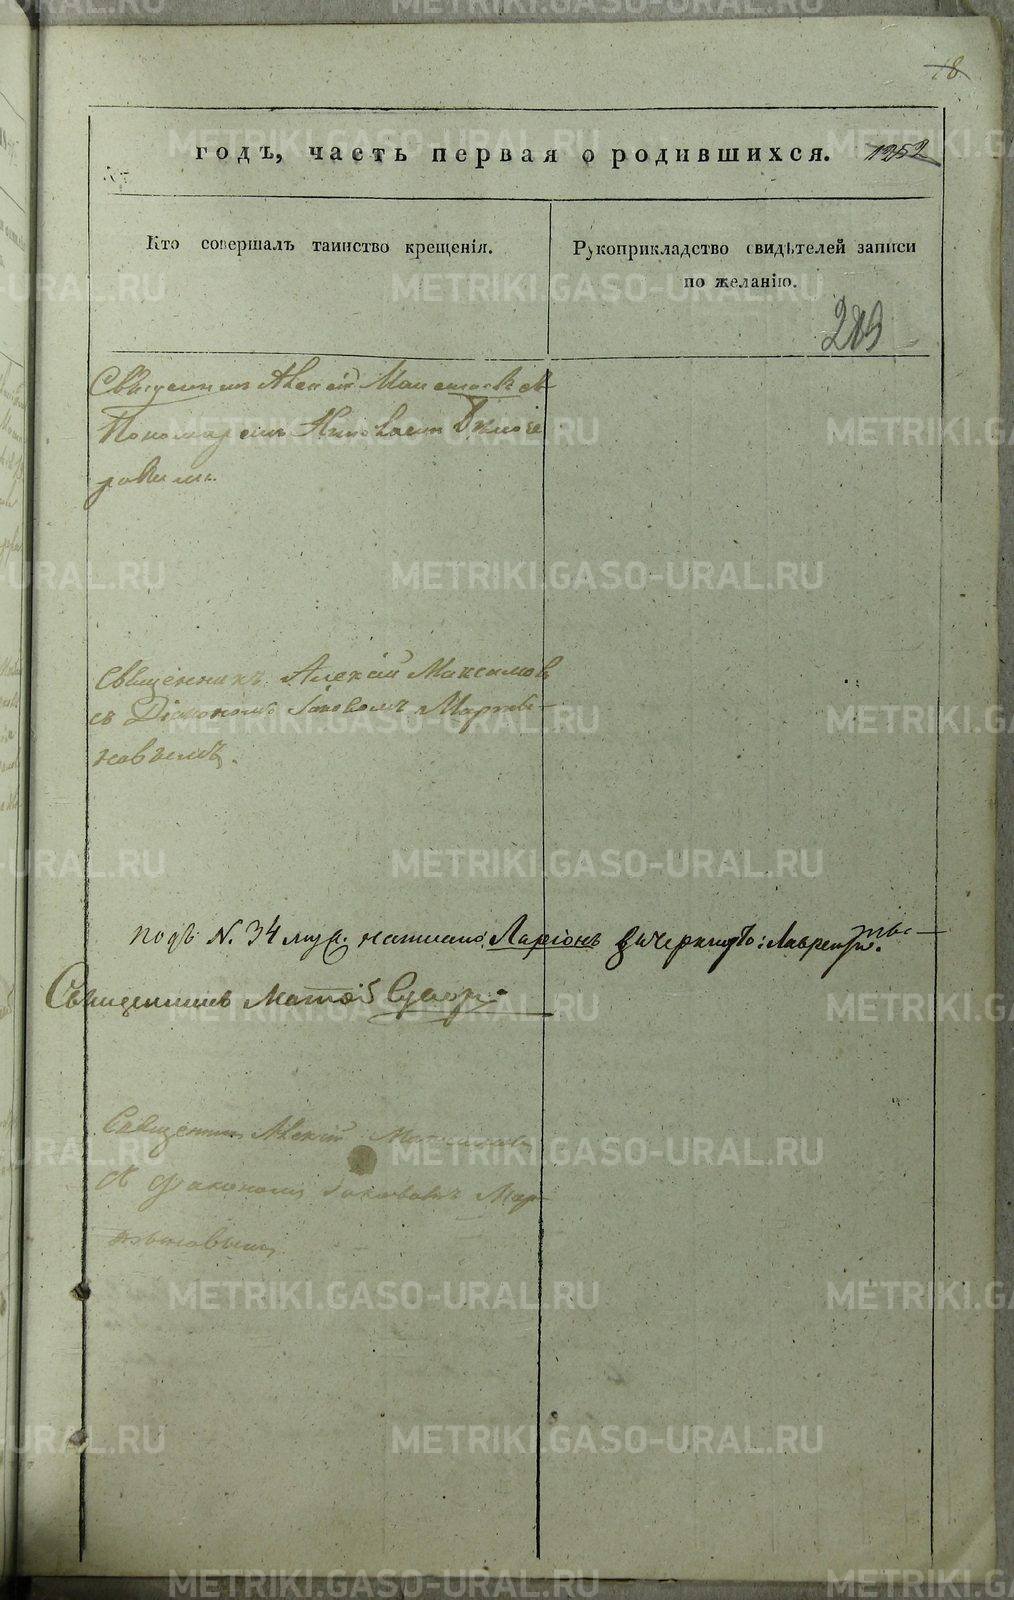 18
годъ, часть первая о родившихся. 1352
Кто совершалъ таинство крещенія.
Рукоприкладство свидѣтелей записи
по желанію.
209
Священникъ Алексій
Пономаремъ Николаемъ
Священникъ Алексій Максимовъ
съ Діакономъ Іаковомъ Марты-
новымъ.
подъ N. 34 муж. написано: Ларіонъ вычеркнуто: Лаврентій.
Священникъ Матѳей
Священникъ Алексій Максимовъ
съ діакономъ Іаковомъ Мар-
тыновымъ
METRIKI.GASO-URAL.RU